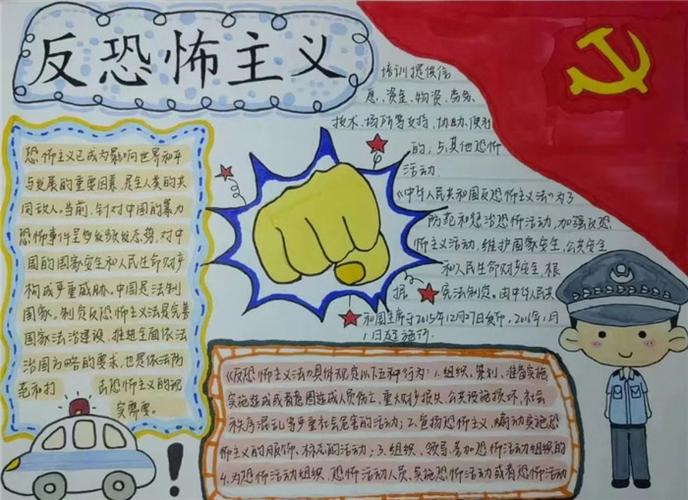 反恐怖主义
恐怖主义已成为影响世界和平
与发展的重要因素,是全人类的共
同敌人。当前,针对中国的暴力
恐怖事件呈多发频发态势,对中
国的国家安全和人民生命财产
构成严重威胁,中国是法制
国家,制定反恐怖主义法是完善
国家法治建设、推进全面依法
治国方略的要求,也是依法防
范和打 击恐怖主义的现
实需要。
培训提供信
息、资金、物资、劳务、
技术、场所等支持、协助、便利
的;5、其他恐怖
活动
《中华人民共和国反恐怖主义法》为了
防范和惩治恐怖活动,加强反恐
怖主义活动,维护国家安全、公共安全
和人民生命财产安全,根
据 宪法制定,由中华人民共
和国主席于2015年12月27日发布,2016年1月
1日起施行。
《反恐怖主义法》具体规范以下五种行为:1.组织、策划、准备实施、
实施造成或者意图造成人员伤亡、重大财产损失、公共设施损坏、社会
秩序混乱等严重社会危害的活动;2、宣扬恐怖主义,煽动实施恐
怖主义的服饰、标志的活动;3、组织、领导、参加恐怖活动组织的
4.为恐怖活动组织、恐怖活动人员、实施恐怖活动或者恐怖活动